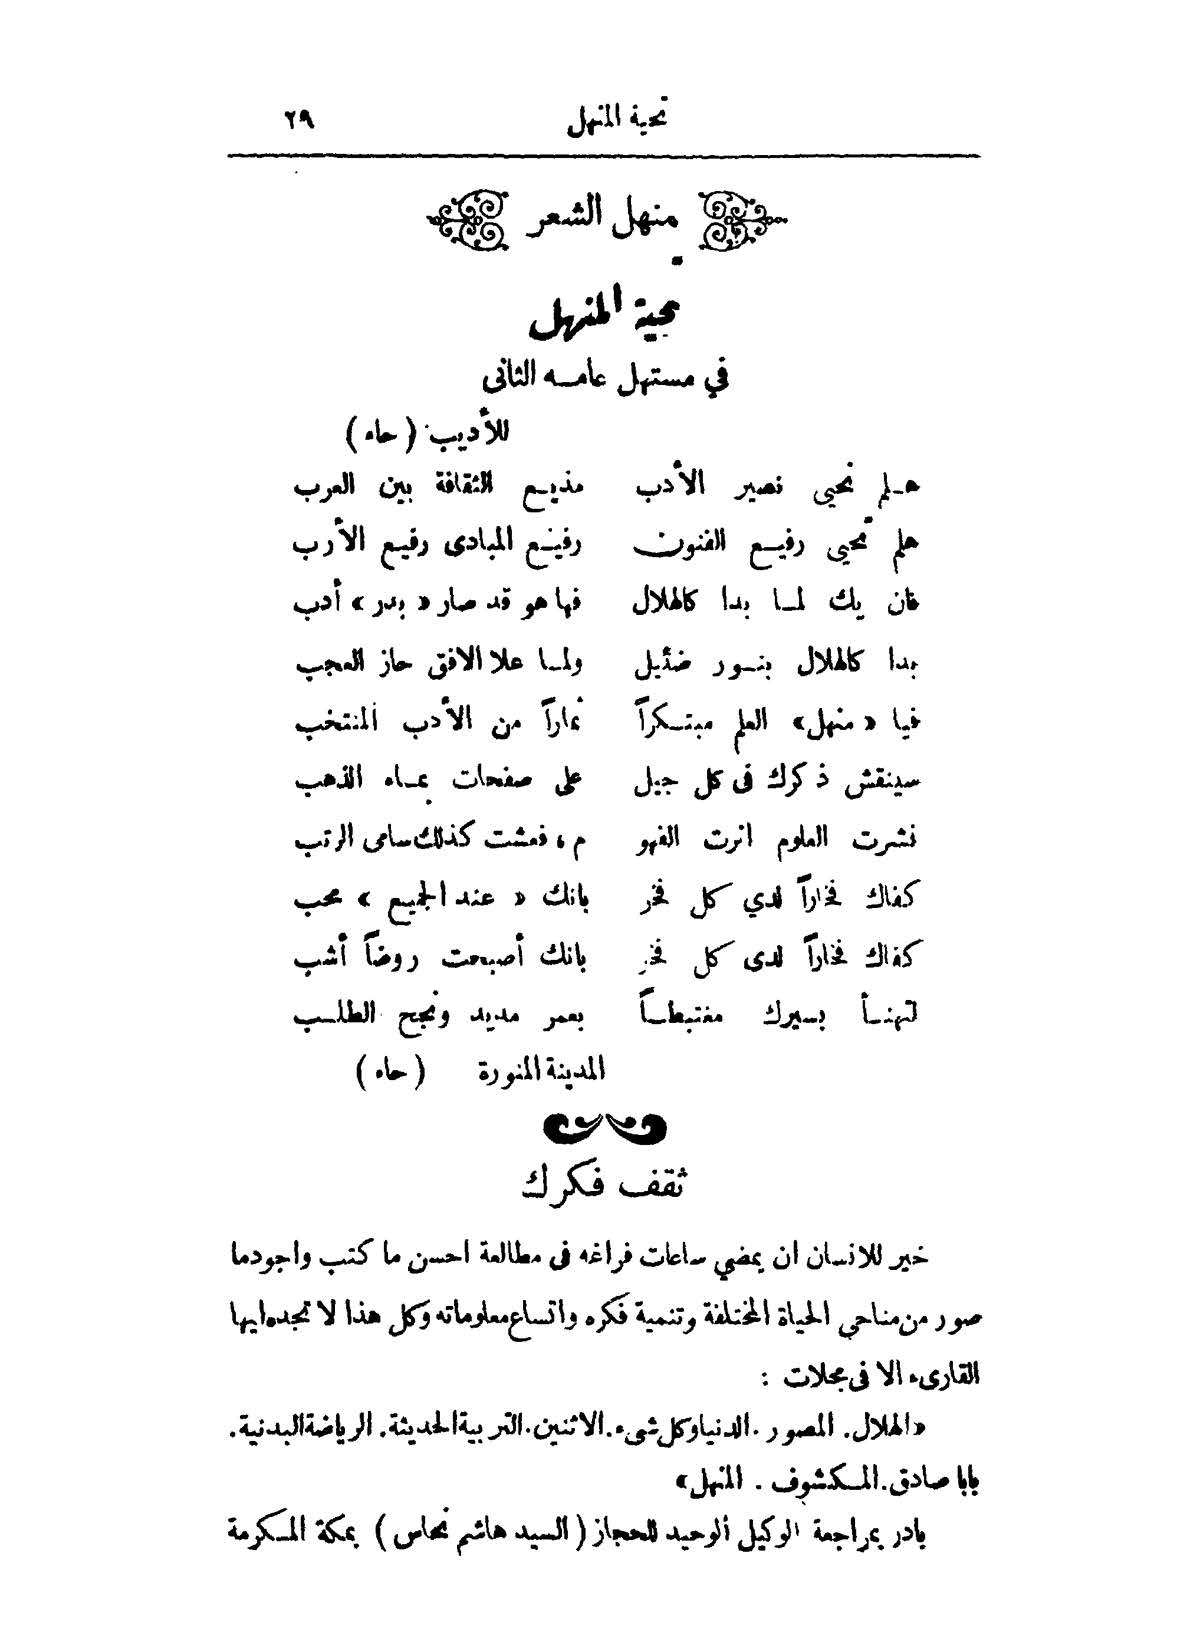 تحية المنهل ٢٩
منهل الشعر
تحية المنهل
في مستهل عامه الثانى
للأديب (حاء)
هلم نحيي نصير الأدب مذيع الثقافة بين العرب
هلم نحيي رفيع الفنون رفيع المبادى رفيع الأرب
فان يك لما بدا كالهلال فها هو قد صار «بدر» أدب
بدا كالهلال بنور ضئيل ولما علا الافق حاز العجب
فيا «منهل» العلم مبتكراً ثماراً من الأدب المنتخب
سينقش ذكرك فى كل جيل على صفحات بماء الذهب
نشرت العلوم انرت الفهو م، فعشت كذلك سامى الرتب
كفاك فخاراً لدي كل فخر بانك «عند الجميع» محب
كفاك فخاراً لدى كل فخر بانك أصبحت روضاً أشب
لتهنأ بسيرك مغتبطاً بعمر مديد ونجح الطلب
المدينة المنورة (حاء)
ثقف فكرك
خير للانسان ان يمضي ساعات فراغه فى مطالعة احسن ما كتب واجود ما
صور من مناحي الحياة المختلفة وتنمية فكره واتساع معلوماته وكل هذا لا تجده ايها
القارىء الا فى مجلات :
«الهلال. المصور. الدنيا وكل شىء. الاثنين. التربية الحديثة. الرياضة البدنية.
بابا صادق. المكشوف. المنهل»
بادر بمراجعة الوكيل الوحيد للحجاز (السيد هاشم نحاس) بمكة المكرمة